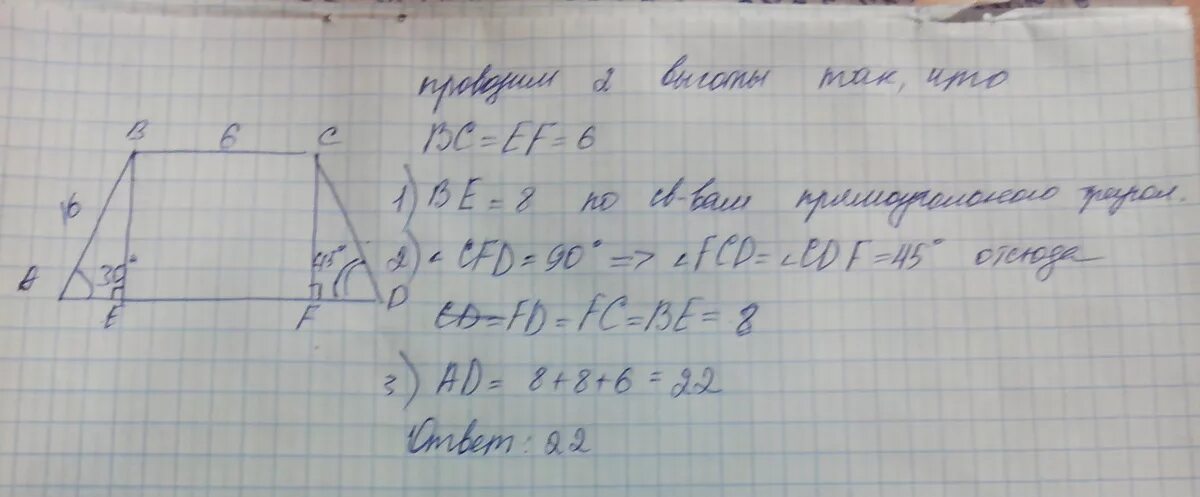 проводим 2 высоты так, что
BC = EF = 6
1) BE = 8 по св-вам прямоугольного треугол.
2) ∠CFD = 90° => ∠FCD = ∠CDF = 45° отсюда
CD = FD = FC = BE = 8
3) AD = 8 + 8 + 6 = 22
Ответ: 22
B 6 C
30° 45°
A E F D